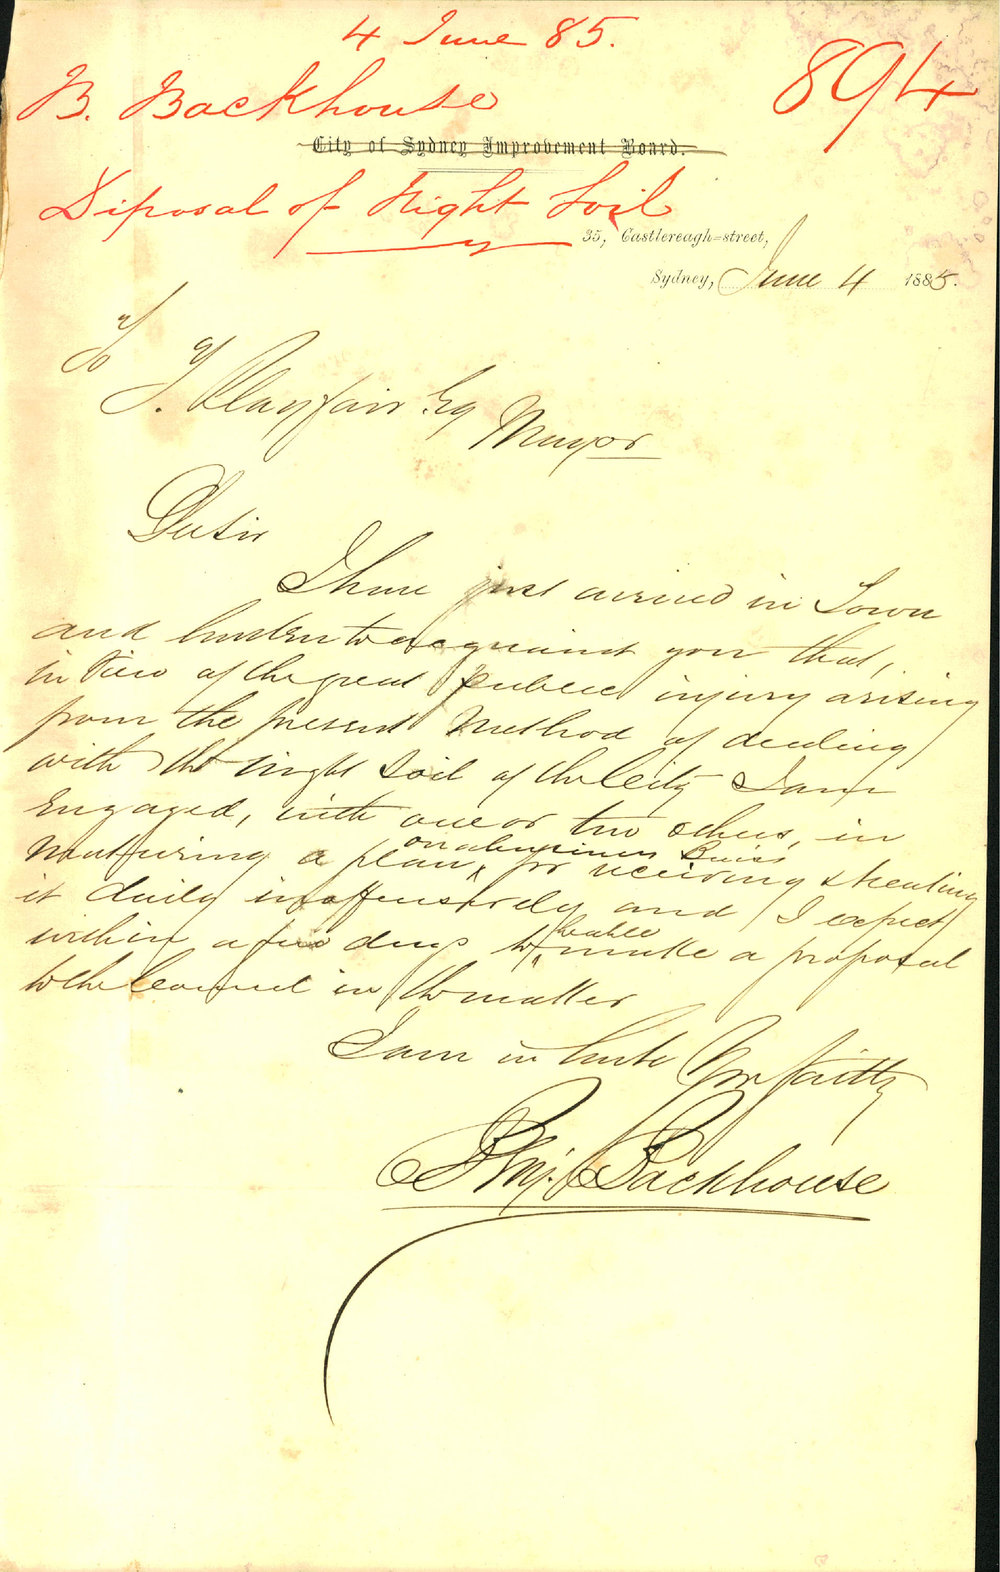 4 June 85.
894
B. Backhouse
City of Sydney Improvement Board.
Disposal of Night Soil
35, Castlereagh-street,
Sydney, June 4 1885.
To
T. Playfair Esq
Mayor
Dear Sir
I have just arrived in Town
and hasten to acquaint you that,
in view of the great public injury arising
from the present method of dealing
with the night soil of the City I am
Engaged, with one or two others, in
Maturing a plan, on a business basis for receiving & treating
it daily inoffensively and I expect
within a few days to be able make a proposal
to the Council in the matter
I am in haste Yr faithy
Benj. Backhouse